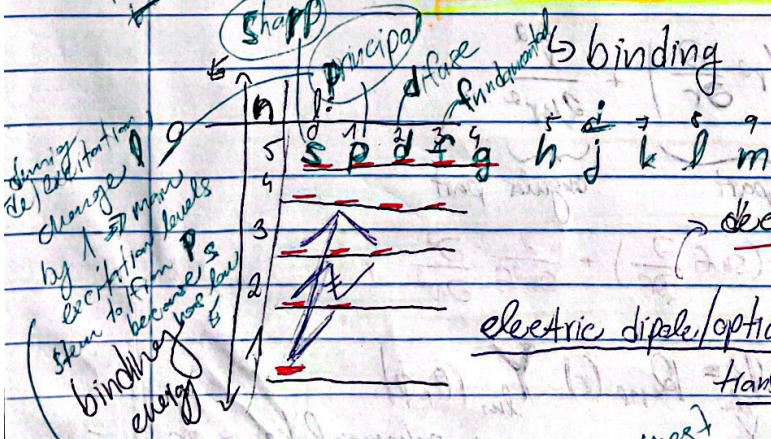 sharp
principal
difuse
fundamental
↳ binding
n
l:
0 1 2 3 4 5 6 7 8 9
5 s p d f g h j k l m
4
3
2
1
during
de/excitation
change l
by 1 ⇒ main
excitation levels
stem to/from p
because s
has low
E
binding
energy
electric dipole/optic
tran